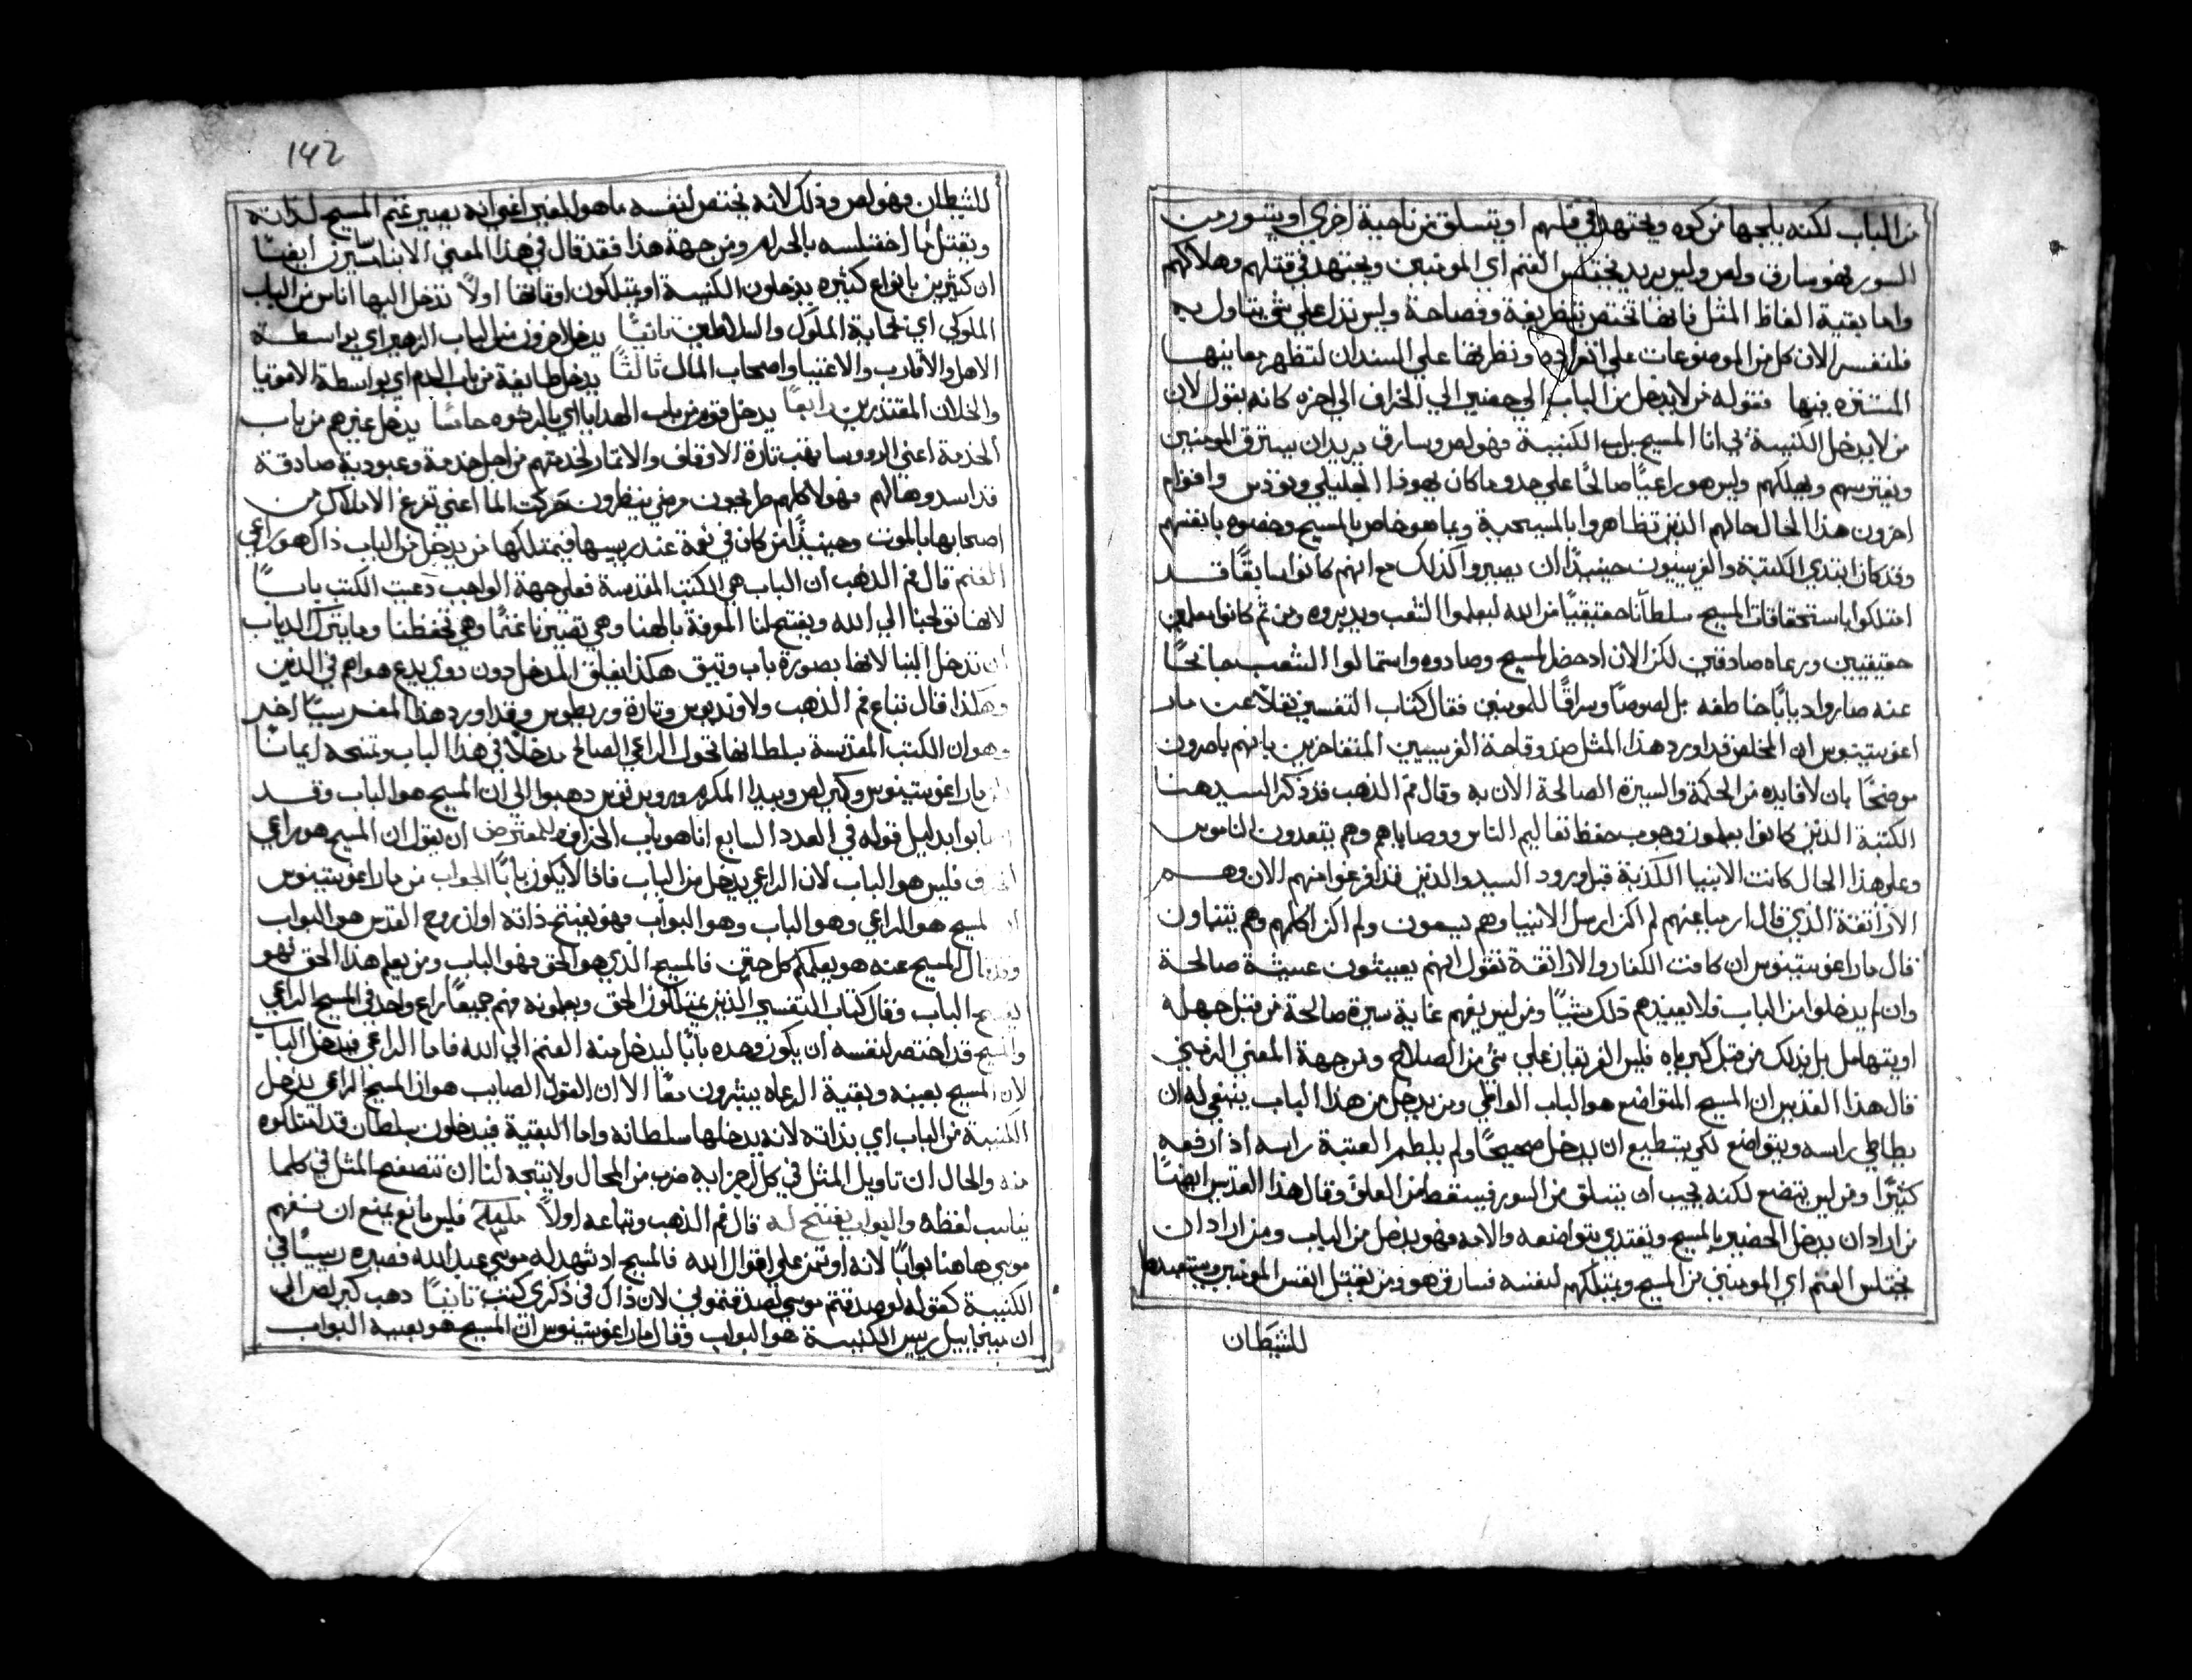 من الباب لكنه يلجها من كوه ويجتهد في قتلهم او يتسلق من ناحية اخري او يتسور من
السور فهو سارق ولص وليس يريد يختلس الغنم اي المومنين ويجتهد في قتلهم وهلاكهم
واما بقية الفاظ المثل فانها تختص بتظريفة وفصاحة وليس تدل علي شي يتاول به
فلنفسر الان كل من الموضوعات علي انفراده ونطرقها علي السندان لتظهر معانيها
المستتره فيها فقوله من لا يدخل من الباب الي حضير الي الخراف الي اخره كانه يقول لان
من لا يدخل الكنيسة بي انا المسيح باب الكنيسة فهو لص وسارق يريد ان يسترق المومنين
ويفترسهم ويهلكهم وليس هو راعيًا صالحًا علي حدو ما كان يهوذا الجليلي وتودس واقوام
اخرون هذا الحال حالهم الذين تظاهروا بالمسيحية وبما هو خاص بالمسيح وخصوه بانفسهم
وقد كان يبتدي الكتبة والفريسيون حينيدًا ان يصيروا كذلك مع انهم كانوا سابقًا قد
امتلكوا باستحقاقات المسيح سلطانًا حقيقيًا من الله ليعلموا الشعب ويدبروه ومن ثم كانوا معلمين
حقيقيين ورعاه صادقين لكن الان ادحضوا المسيح وصادوه واستمالوا الشعب جانحًا
عنه صاروا ديابًا خاطفه بل لصوصًا وسراقًا للمومنين فقال كتاب التفسير نقلًا عن مار
اغوستينوس ان المخلص قد اورد هذا المثل ضد وقاحة الفريسيين المتفاخرين بانهم ياصرون
موضحًا بان لا فايده من الحكمة والسيرة الصالحة الا به وقال فم الذهب قد ذكر السيد هنا
الكتبة الذين كانوا يعلمون وجوب حفظ تعاليم الناس ووصاياهم وهم يتعدون الناموس
وعلي هذا الحال كانت الانبيا الكذبة قبل ورود السيد والذين قد افرعوا منهم الان وهم
الاراتقة الذي قال ارميا عنهم لم اكن ارسل الانبيا وهم يسعون ولم اكن اكلمهم وهم يتنباون
قال مار اغوستينوس ان كانت الكفار والاراتقة تقول انهم يعيشون عيشة صالحة
وان لم يدخلوا من الباب فلا يفيدهم ذلك شيًا ومن ليس يفهم غاية سيرة صالحة من قبل جهله
او يتهامل بل بذلك من قبل كبرياه فليس الفريقان علي شي من الصلاح ومن جهة المعني الرمزي
قال هذا القديس ان المسيح المتواضع هو الباب الواطي ومن يدخل من هذا الباب ينبغي له ان
يطاطي راسه ويتواضع لكي يستطيع ان يدخل صحيحًا ولم يلطم العتبة راسه اذا رفعه
كثيرًا ومن ليس يتضع لكنه يحب ان يتسلق من السور فيسقط من العلو وقال هذا القديس ايضًا
من اراد ان يدخل الحضير بالمسيح ويقتدي بتواضعه والامه فهو يدخل من الباب ومن اراد ان
يختلس الغنم اي المومنين من المسيح ويمتلكهم لنفسه فسارق هو ومن يقتل انفس المومنين ويستعبدها
للشيطان
142
للشيطان فهو لص وذلك لانه يختص لنفسه ما هو للغير اعني انه يصير غنم المسيح لذاته
ويقتل ما اختلسه بالحرام ومن جهة هذا فقد قال في هذا المعني الانبا سيرن ايضًا
ان كثيرين بانواع كثيره يدخلون الكنيسة او يمتلكون اوقافها اولًا تدخل اليها اناس من الباب
الملوكي اي بحماية الملوك والسلاطين ثانيًا يدخل اخرون من الباب الرهين اي بواسطة
الاهل والاقارب والاغنيا واصحاب المال ثالثًا يدخل طايفة من باب الدم اي بواسطة الاقويا
والخلان المقتدرين رابعًا يدخل قوم من باب الهدايا اي بالرشوه خامسًا يدخل غيرهم من باب
الخدمة اعني الروسا تهب تارة الاوقاف والاتمار لخدمتهم من اجل خدمة وعبودية صادقة
قد اسدوها لهم فهولا كلهم طريحون ومرضي ينظرون حركت الما اعني تفرغ الاملاك من
اصحابها بالموت وحينيدًا من كان في نعمة عند رييسها فيمتلكها من يدخل من الباب ذاك هو راعي
الغنم قال فم الذهب ان الباب هي الكتب المقدسة فعلي جهة الواجب دعيت الكتب بابًا
لانها تولجنا الي الله ويفتح لنا المعرفة بالهنا وهي تصيرنا غنمًا وهي تحفظنا وما يترك الدياب
ان تدخل الينا لانها بصورة باب وتيق هكذا يغلق المدخل دون دوي بدع هواهم في الدين
وهكذا قال تباع فم الذهب ولاونديوس وتارة وربطوس وقد اورد هذا المفسر سببًا اخر
وهو ان الكتب المقدسة بسلطانها تخول الراعي الصالح مدخلًا في هذا الباب وتمنحه ايمانًا
مار اغوستينوس وكيرلص وبيدا المكرم وروبرتوس دهبوا الي ان المسيح هو الباب وقد
بدليل قوله في العدد السابع انا هو باب الخراف وللمعترض ان يقول ان المسيح هو راعي
فليس هو الباب لان الراعي يدخل من الباب فاذا لا يكون بابًا الجواب من مار اغوستينوس
المسيح هو الراعي وهو الباب وهو البواب فهو يفتح ذاته او ان روح القدس هو البواب
وقد قال المسيح عنه هو يعلمكم كل حق فالمسيح الذي هو الحق فهو الباب ومن يعلم هذا الحق فهو
يفتح الباب وقال كتاب التفسير الذين يمتلكون الحق ويعلمونه فهم جميعًا راع واحد في المسيح الراعي
والمسيح قد اختص لنفسه ان يكون وحده بابًا ليدخل منه الغنم الي الله فاما الراعي فيدخل الباب
لان المسيح بعينه وبقية الرعاه يبشرون معًا الا ان القول الصايب هو ان المسيح الراعي يدخل
الكنيسة من الباب اي بذاته لانه يدخلها سلطانه واما البقية فيدخلون بسلطان قد امتلكوه
منه والحال ان تاويل المثل في كل اجزايه ضرب من المحال ولا يتجه لنا ان نتصفح المثل في كلما
يناسب لفظه والبواب يفتح له قال فم الذهب وتباعه اولًا فليس مانع يمنع ان نفهم
موسي هاهنا بوابًا لانه اوتمن علي اقوال الله فالمسيح اد شهد له موسي عبد الله فصيره رييسًا في
الكنيسة كقوله لو صدقتم موسي لصدقتموني لان ذاك في ذكري كتب ثانيًا دهب كيرلص الي
ان ميخاييل رييس الكنيسة هو البواب وقال مار اغوستينوس ان المسيح هو بعينه البواب